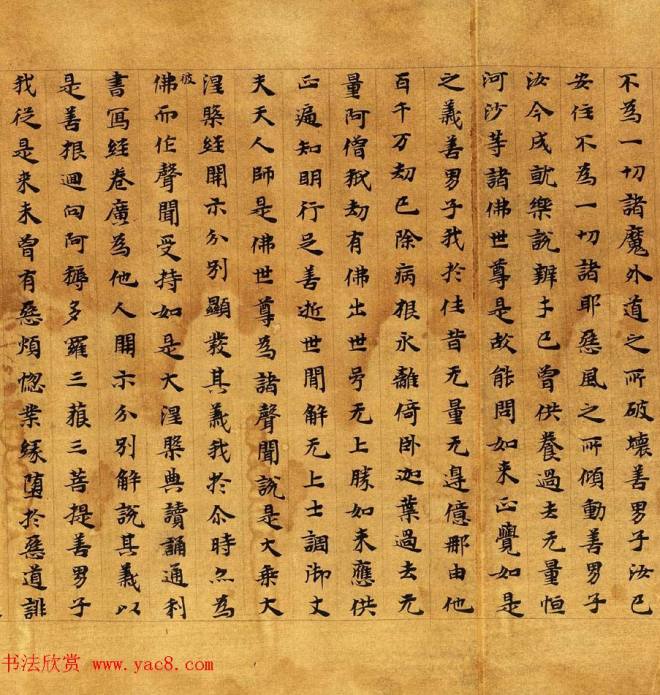 不為一切諸魔外道之所破壞善男子汝已
安住不為一切諸耶惡風之所傾動善男子
汝今成就樂說辯才已曾供養過去无量恒
河沙等諸佛世尊是故能問如来正覺如是
之義善男子我於往昔无量无邊億那由他
百千万劫已除病根永離倚卧迦葉過去无
量阿僧祇劫有佛出世号无上勝如来應供
正遍知明行足善逝世間解无上士調御丈
夫天人師是佛世尊為諸聲聞說是大乘大
涅槃經開示分別顯發其義我於尒時亦為
彼
佛而作聲聞受持如是大涅槃典讀誦通利
書寫經卷廣為他人開示分別解說其義以
是善根迴向阿耨多羅三藐三菩提善男子
我從是来未曾有惡煩惱業緣墮於惡道誹
书法欣赏 www.yac8.com